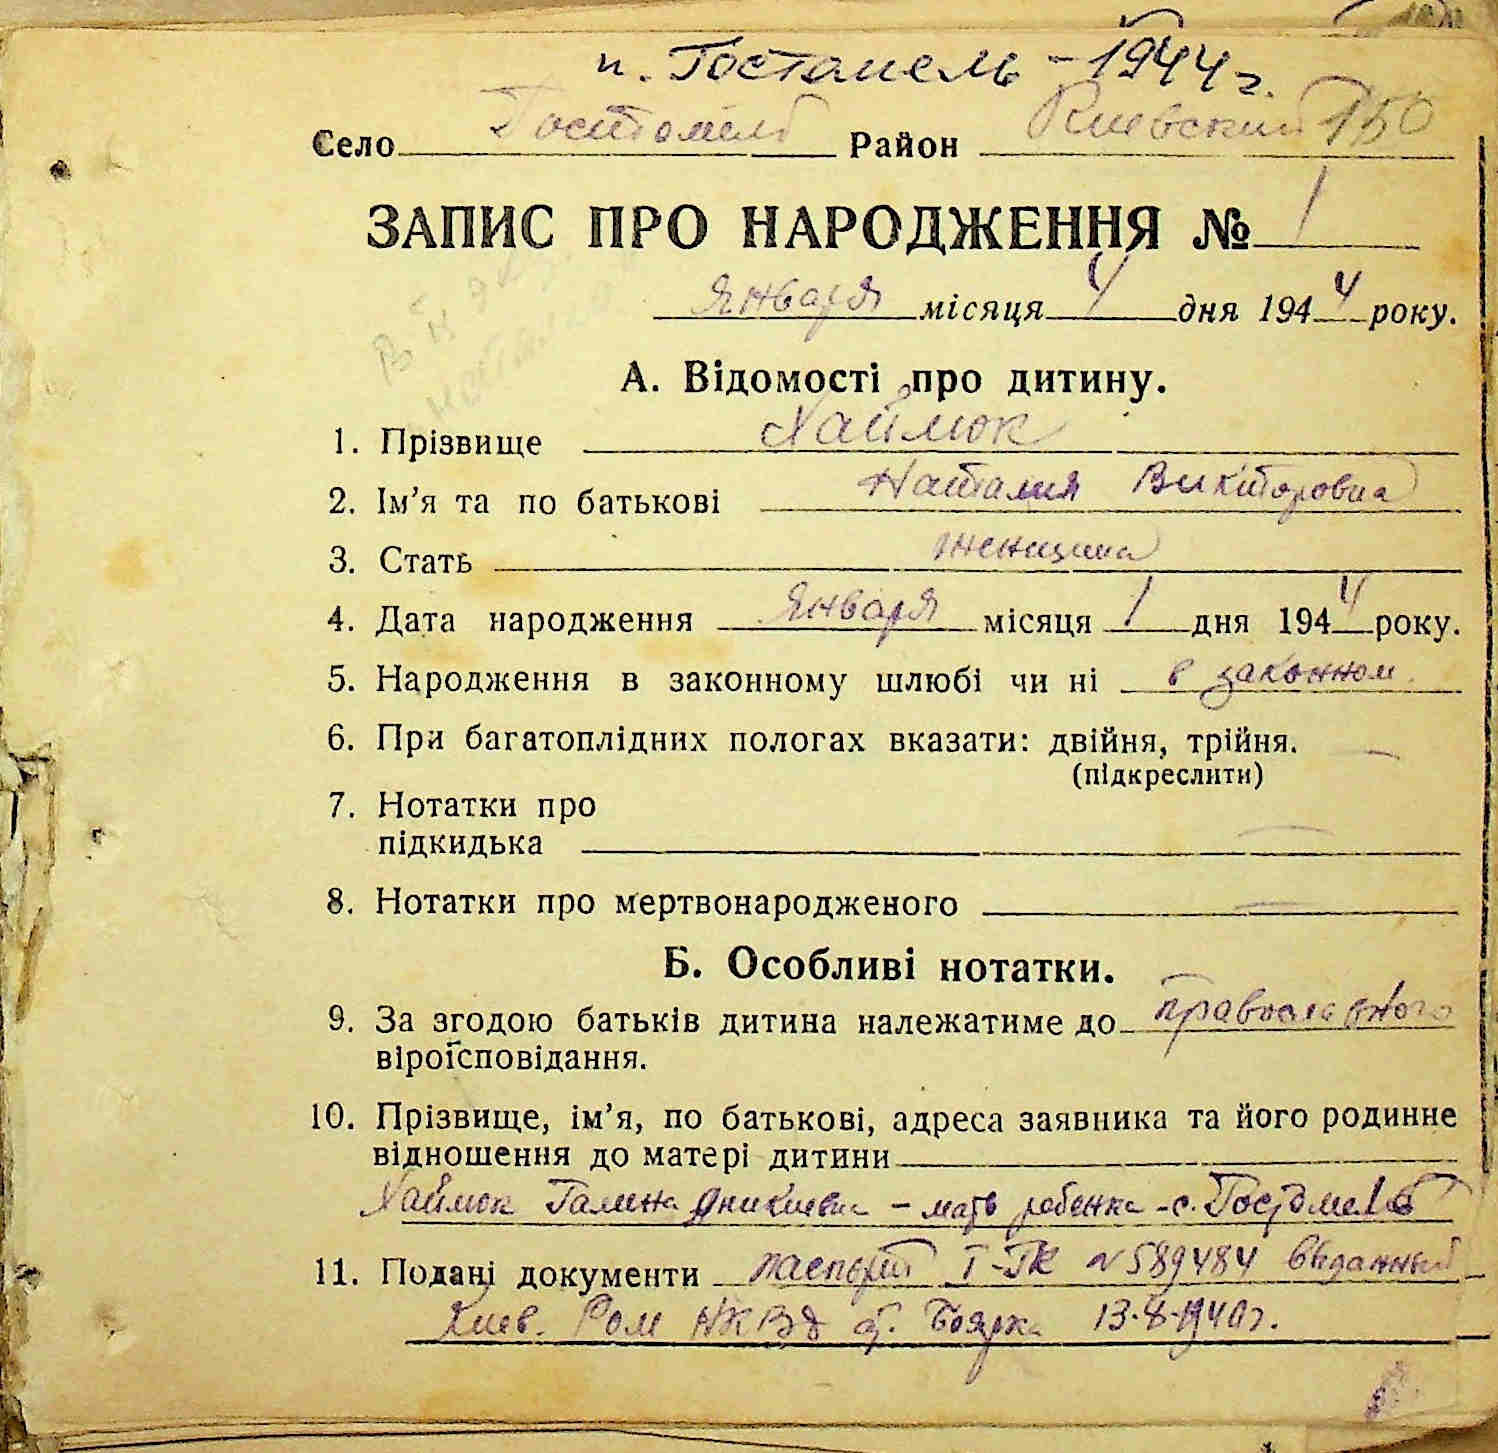 п. Гостомель - 1944 г.
Село Гостомель Район Киевский 150
ЗАПИС ПРО НАРОДЖЕННЯ № 1
Января місяця 4 дня 1944 року.
А. Відомості про дитину.
1. Прізвище Хаймюк
2. Ім’я та по батькові Наталия Викторовна
3. Стать женщина
4. Дата народження Января місяця 1 дня 1944 року.
5. Народження в законному шлюбі чи ні в законном.
6. При багатоплідних пологах вказати: двійня, трійня. —
(підкреслити)
7. Нотатки про
підкидька —
8. Нотатки про мертвонародженого —
Б. Особливі нотатки.
9. За згодою батьків дитина належатиме до православного
віроїсповідання.
10. Прізвище, ім’я, по батькові, адреса заявника та його родинне
відношення до матері дитини
Хаймюк Галина - мать ребенка - с. Гостомель
11. Подані документи паспорт I-ГК N 589484 выданный
Киев. Ром НКВД ст. Боярка 13.8.1940 г.